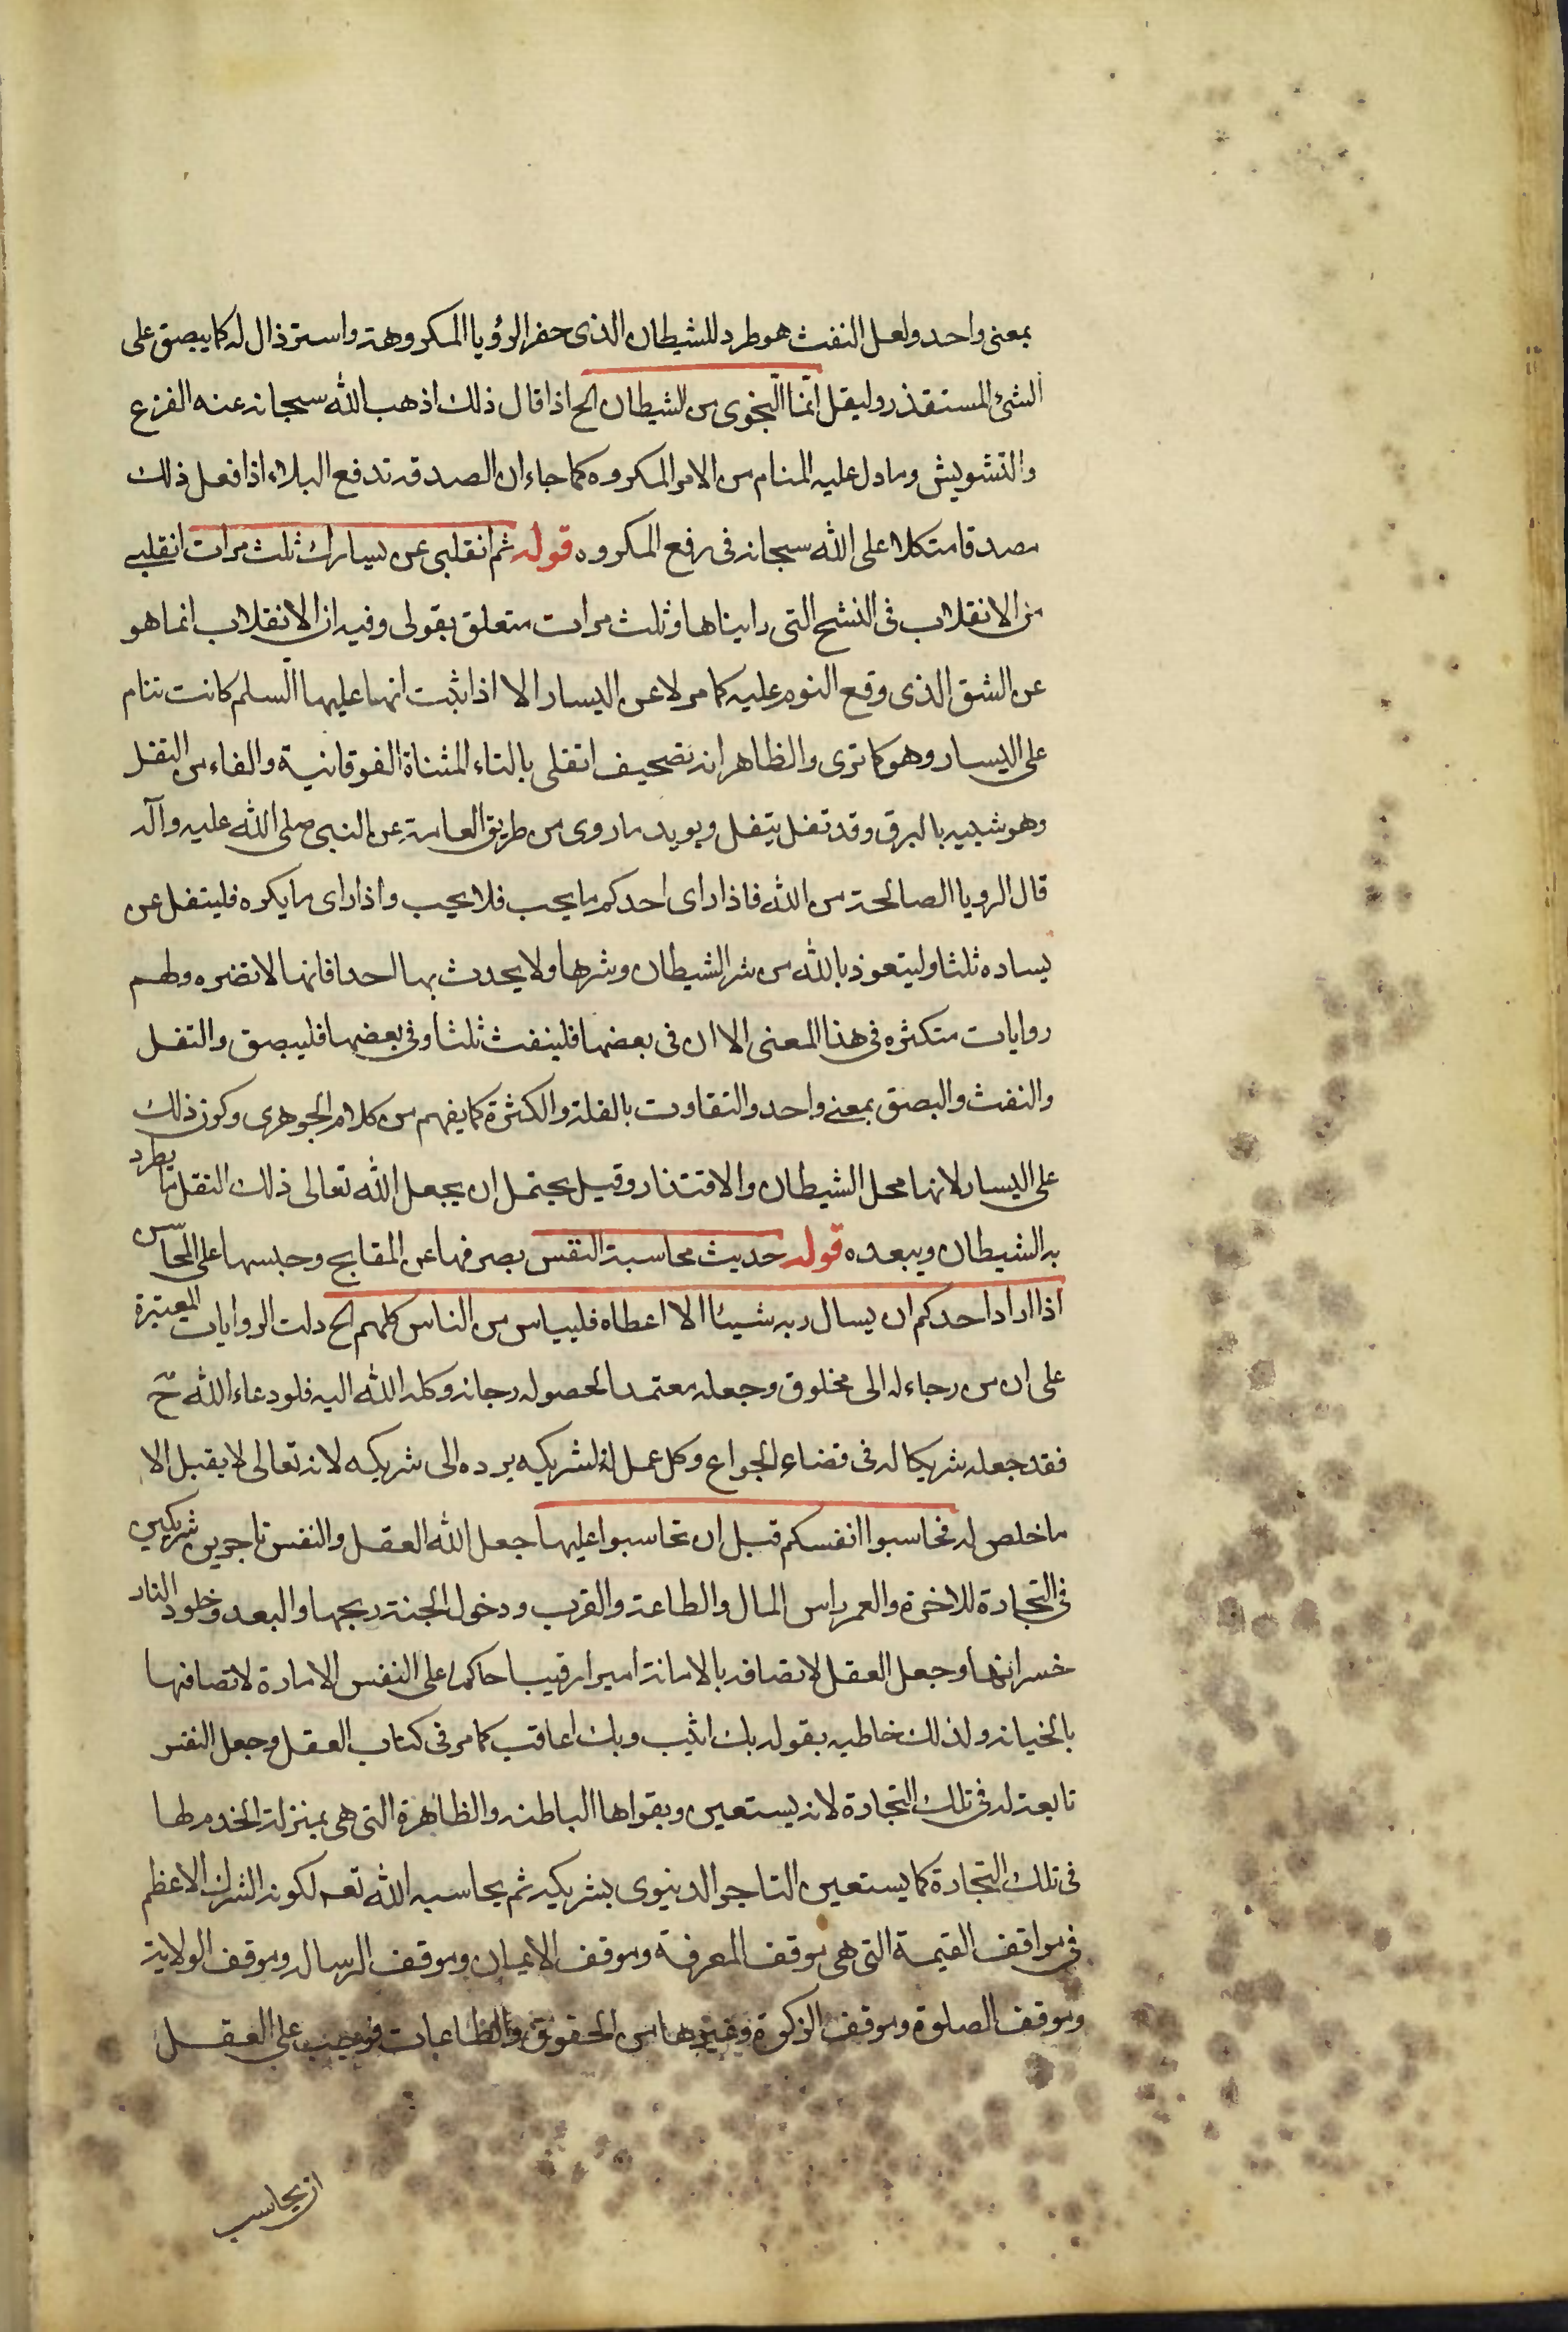 بمعنى واحد ولعل النفث هو طرد للشيطان الذى حضر الرؤيا المكروهة واسترذال له كما يبصق على
الشئ المستقذر وليقل انّما النّجوى من الشيطان الخ اذا قال ذلك اذهب الله سبحانه عنه الفزع
والتشويش وما دل عليه المنام من الامر المكروه كما جاء ان الصدقة تدفع البلاء اذا فعل ذلك
مصدقا متكلا على الله سبحانه فى رفع المكروه قوله ثم انقلبى عن يسارك ثلث مرات انقلبى
من الانقلاب فى النسخ التى رايناها وثلث مرات متعلق بقولى وفيه ان الانقلاب انما هو
عن الشق الذى وقع النوم عليه كما مر لا عن اليسار الا اذا ثبت انها عليها السّلم كانت تنام
على اليسار وهو كما ترى والظاهر انه تصحيف اتفلى بالتاء المثناة الفوقانية والفاء من التفل
وهو شبيه بالبزق وقد تفل يتفل ويويده ما روى من طريق العامة عن النبى صلى الله عليه وآله
قال الرويا الصالحة من الله فاذا راى احدكم ما يحب فلا يحب واذا راى ما يكره فليتفل عن
يساره ثلثا وليتعوذ بالله من شر الشيطان وشرها ولا يحدث بها احدا فانها لا تضره ولهم
روايات متكثره فى هذا المعنى الا ان فى بعضها فلينفث ثلثا وفى بعضها فليبصق والتفل
والنفث والبصق بمعنى واحد والتفاوت بالقلة والكثرة كما يفهم من كلام الجوهرى وكون ذلك
على اليسار لانها محل الشيطان والاقتذار وقيل يحتمل ان يجعل الله تعالى ذلك التفل مما يطرد
به الشيطان ويبعده قوله حديث محاسبة النفس بصرفها عن المقابح وحبسها على المحاسن
اذا اراد احدكم ان يسال ربه شيئا الا اعطاه فليياس من الناس كلهم الخ دلت الروايات المعتبرة
على ان من رجاء له الى مخلوق وجعله معتمدا لحصوله رجائه وكله الله اليه فلو دعاء الله ح
فقد جعله شريكا له فى قضاء الحوائج وكل عمل له لشريكه يرده الى شريكه لانه تعالى لا يقبل الا
ما خلص له فحاسبوا انفسكم قبل ان تحاسبوا عليها جعل الله العقل والنفس تاجرين شريكين
فى التجارة للاخرة والعمر راس المال والطاعة والقرب ودخول الجنة ربحها والبعد وخلود النار
خسرانها وجعل العقل لاتصافه بالامانة اميرا رقيبا حاكما على النفس الامارة لاتصافها
بالخيانه ولذلك خاطبه بقوله بك اثيب وبك اعاقب كما مر فى كتاب العقل وجعل النفس
تابعة له فى تلك التجارة لانه يستعين وبقواها الباطنه والظاهرة التى هى بمنزلة الخدم لها
فى تلك التجارة كما يستعين التاجر الدنيوى بشريكه ثم يحاسبه الله تعه لكونه الشريك الاعظم
فى مواقف القيمة التى هى موقف المعرفة وموقف الايمان وموقف الرساله وموقف الولاية
وموقف الصلوة وموقف الزكوة وغيرها من الحقوق والطاعات فوجب على العقل
ان يحاسب